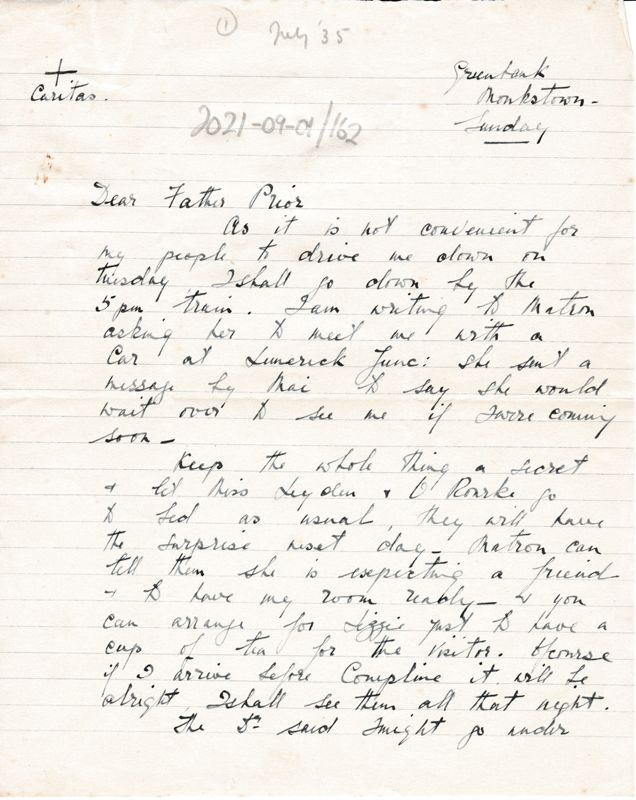 ① July '35
+
Caritas.
Greenbank
Monkstown -
Sunday
2021-09-01/162
Dear Father Prior
As it is not convenient for
my people to drive me down on
Tuesday, I shall go down by the
5 pm train. I am writing to Matron
asking her to meet me with a
Car at Limerick Junc: she sent a
message by Mai to say she would
wait over to see me if I were coming
soon -
Keep the whole thing a secret
& let Miss Leyden & O'Rourke go
to bed as usual, they will have
the surprise next day - Matron can
tell them she is expecting a friend
& to have my room ready - & you
can arrange for Lizzie just to have a
cup of tea for the visitor. Of course
if I arrive before Compline it will be
alright, I shall see them all that night.
The Dr said I might go under